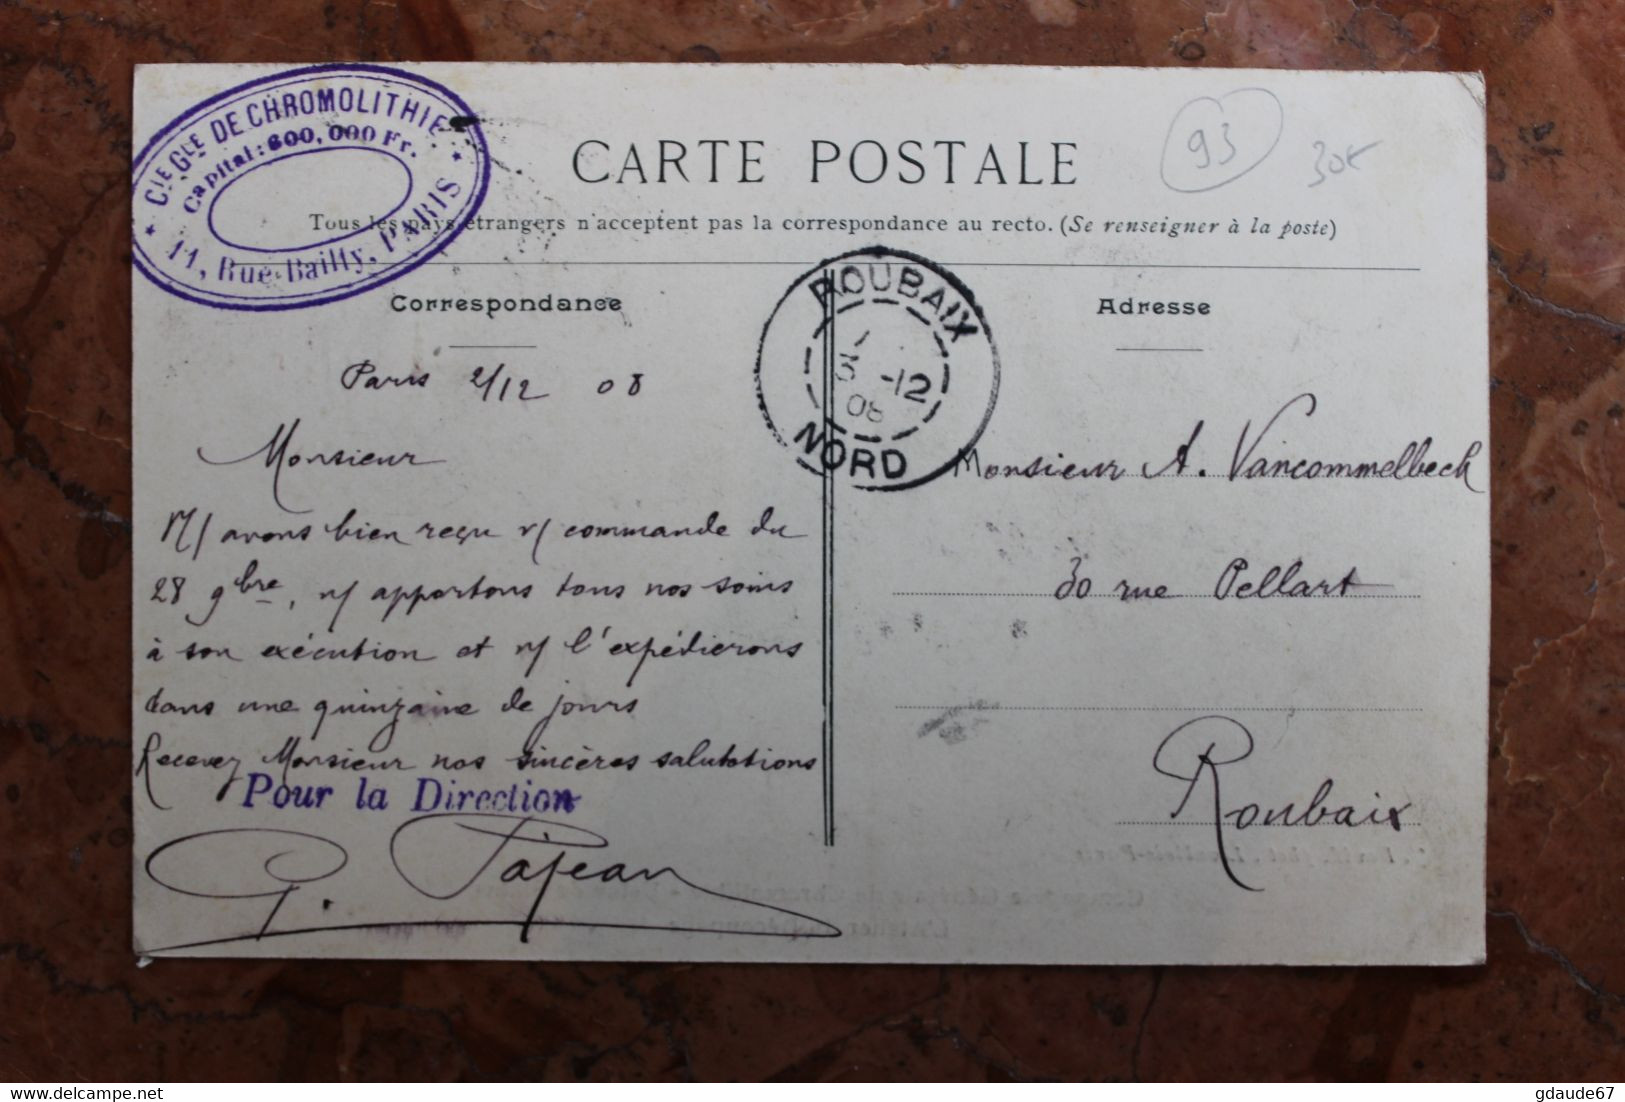 Cie Gle DE CHROMOLITHIE
Capital: 600,000 Fr.
11, Rue Bailly, PARIS
93
30€
CARTE POSTALE
Tous les pays étrangers n'acceptent pas la correspondance au recto. (Se renseigner à la poste)
Correspondance
Adresse
ROUBAIX
-12
08
NORD
Paris 2/12 08
Monsieur
N/ avons bien reçu v/ commande du
28 9bre, n/ apportons tous nos soins
à son exécution et n/ l'expédierons
dans une quinzaine de jours
Recevez Monsieur nos sincères salutations
Pour la Direction
G. Pajean
Monsieur A. Vancommelbeck
30 rue Pellart
Roubaix
delcampe.net
gdaude67